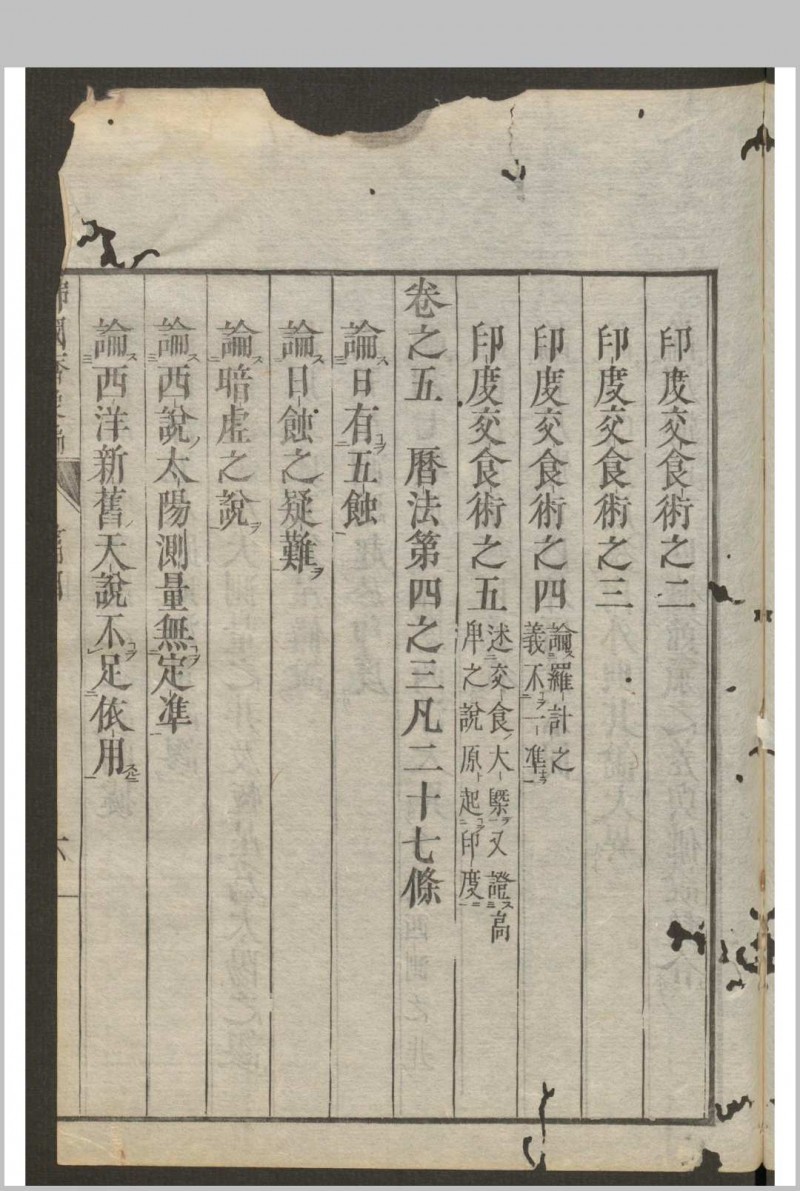 印度交食術之二
印度交食術之三
印度交食術之四 論羅計之
義不一準
印度交食術之五 述交食大槩又證高
卑之說原起印度
卷之五 暦法第四之三凡二十七條
論日有五蝕
論日蝕之疑難
論暗虛之說
論西說太陽測量無定準
論西洋新舊天說不足依用